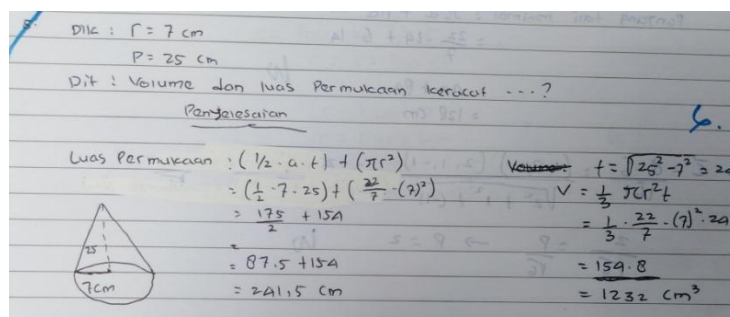 5.
Dik : r = 7 cm
P = 25 cm
Dit : Volume dan luas Permukaan kerucut ...?
Penyelesaian
6.
Luas Permukaan : (1/2 . a . t) + (πr²)
= (1/2 . 7 . 25) + (22/7 . (7)²)
= 175/2 + 154
=
= 87.5 + 154
= 241,5 cm
25
7cm
t = √25² - 7² = 24
V = 1/3 πr²t
= 1/3 . 22/7 . (7)² . 24
= 154.8
= 1232 cm³